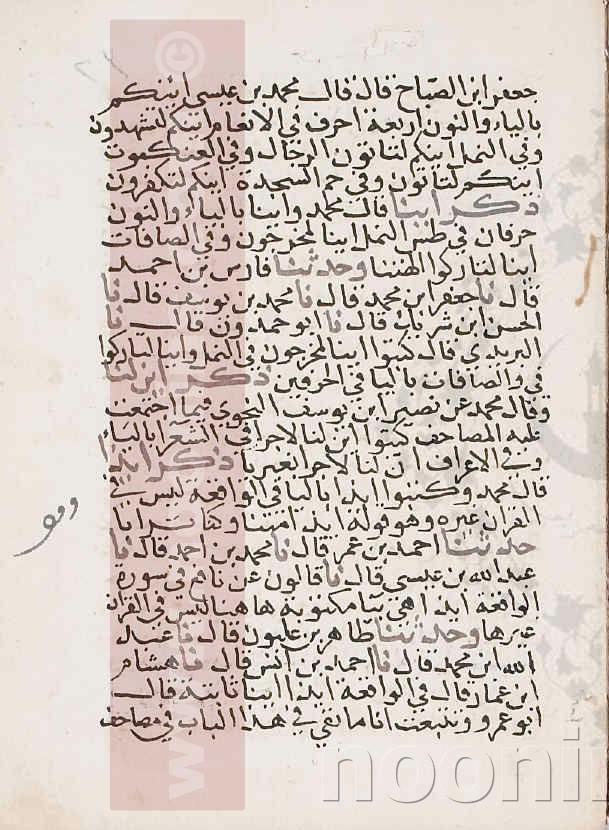 جعفر ابن الصباح قال قال محمد بن عيسى اينكم
بالياء والنون اربعة احرف في الانعام اينكم لتشهدون
وفي النمل اينكم لتاتون الرجال وفي العنكبوت
اينكم لتاتون وفي حم السجده اينكم لتكفرون
ذكر اينا قال محمد واينا بالياء والنون
حرفان في طس النمل اينا لمخرجون وفي الصافات
اينا لتاركوا الهتنا وحدثنا فارس بن احمد
قال نا جعفر ابن محمد قال نا محمد بن يوسف قال نا
الحسن ابن شريك قال نا ابو حمدون قال نا
اليزيدي قال كتبوا اينا لمخرجون في النمل واينا لتاركوا
في والصافات باليا في الحرفين ذكر اين لنا
وقال محمد عن نصير ابن يوسف النحوي فيما اجتمعت
عليه المصاحف كتبوا اين لنا لاجرا في الشعرا بالياء
وفي الاعراف ان لنا لاجرا بغير يا ذكر ايذا
قال محمد وكتبوا ايذا باليا في الواقعة ليس في
القران غيره وهو قوله ايذا متنا وكنا ترابا
حدثنا احمد بن عمر قال نا محمد بن احمد قال نا
عبد الله بن عيسى قال نا قالون عن نافع في سورة
الواقعة ايذا هي بيا مكتوبة هاهنا ليس في القران
غيرها وحدثنا طاهر بن غلبون قال نا عبد
الله ابن محمد قال نا احمد بن انس قال نا هشام
ابن عمار قال في الواقعة ايذا اليا ثابتة قال
ابو عمرو وتتبعت انا ما بقي في هذا الباب في مصاحف
nooni